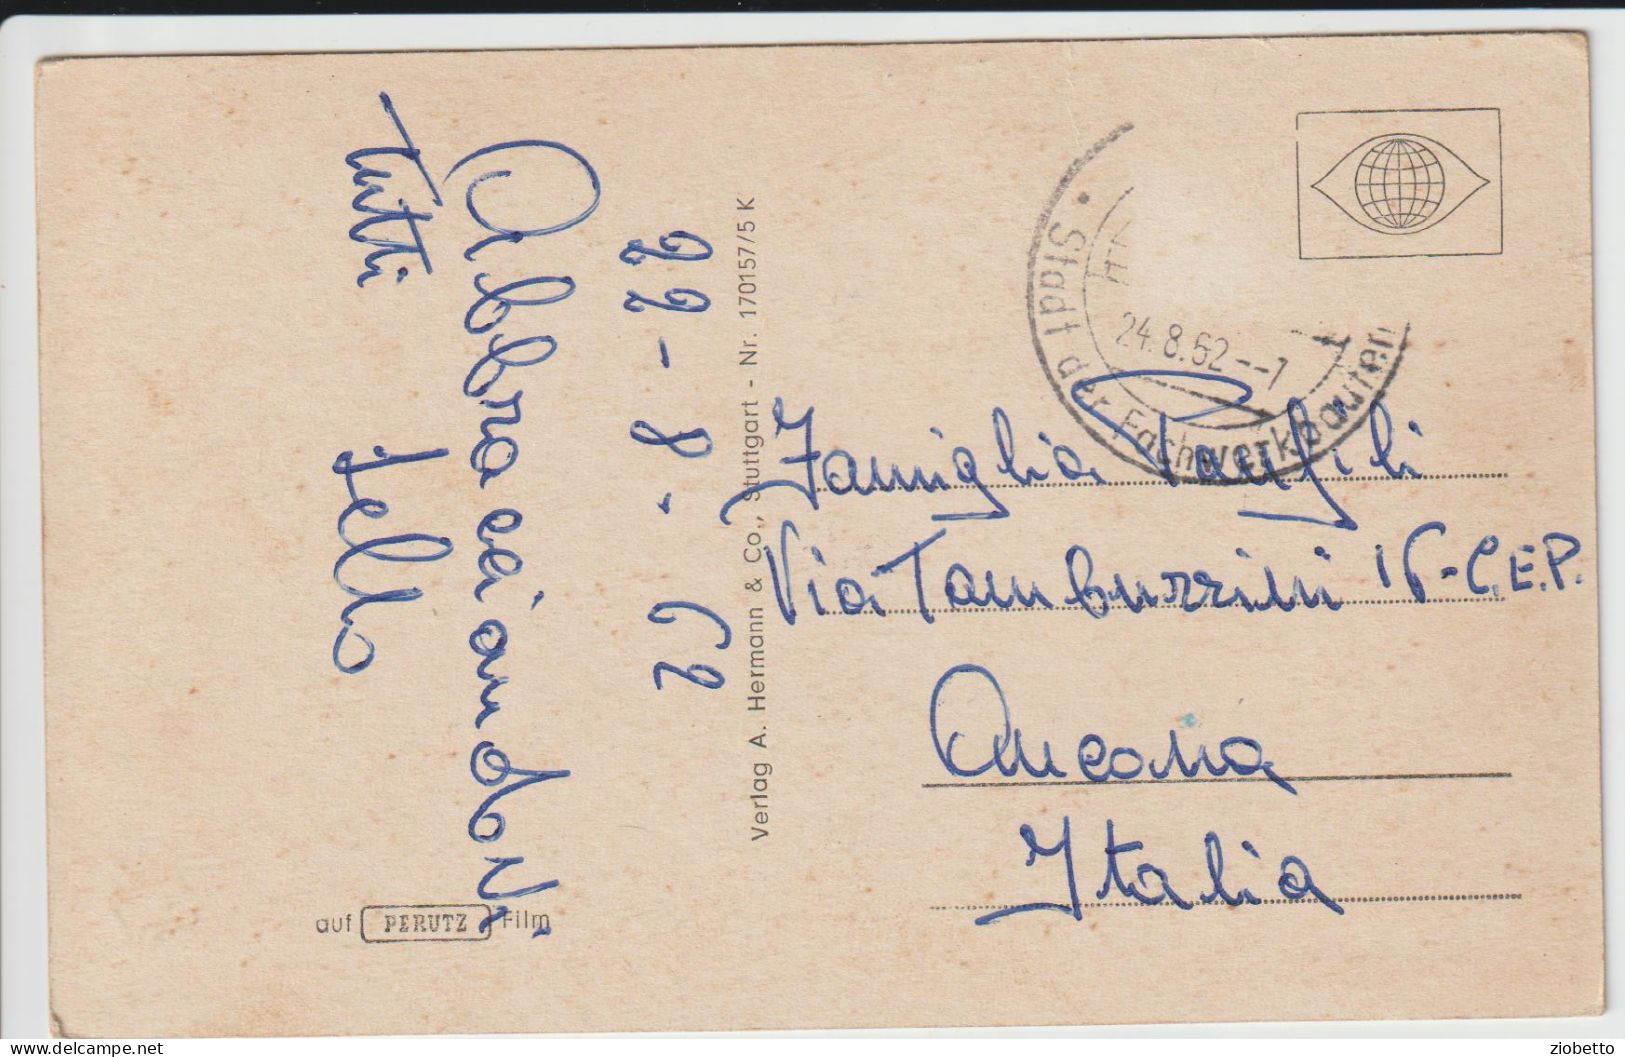 22-8.62
Abbracciandovi
tutti
Lello
Verlag A. Hermann & Co., Stuttgart - Nr. 170157/5 K
auf PERUTZ Film
Stadt der Fachwerkbauten
24.8.62--7
Famiglia
Via Tamburrini 16-C.E.P.
Ancona
Italia
delcampe.net
ziobetto